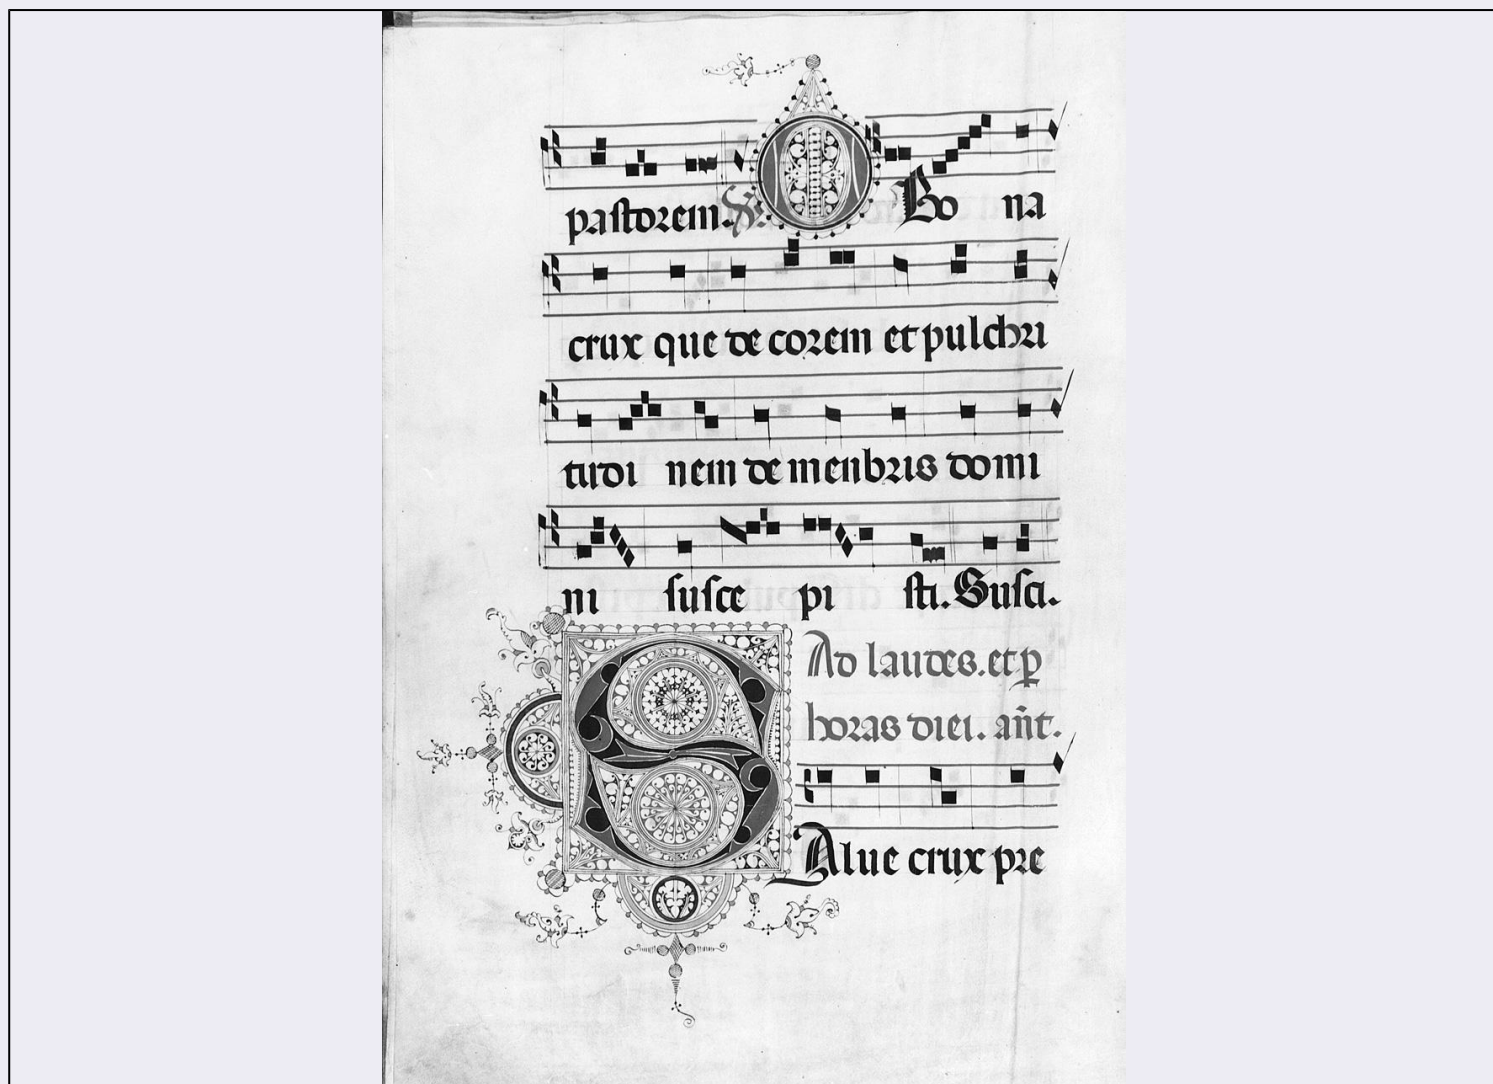 pastorem. ℣. O Bo na
crux que de corem et pulchri
tudi nem de menbris domi
ni susce pi sti. Susci.
Ad laudes. et p̱
horas diei. añt.
S Alue crux pre